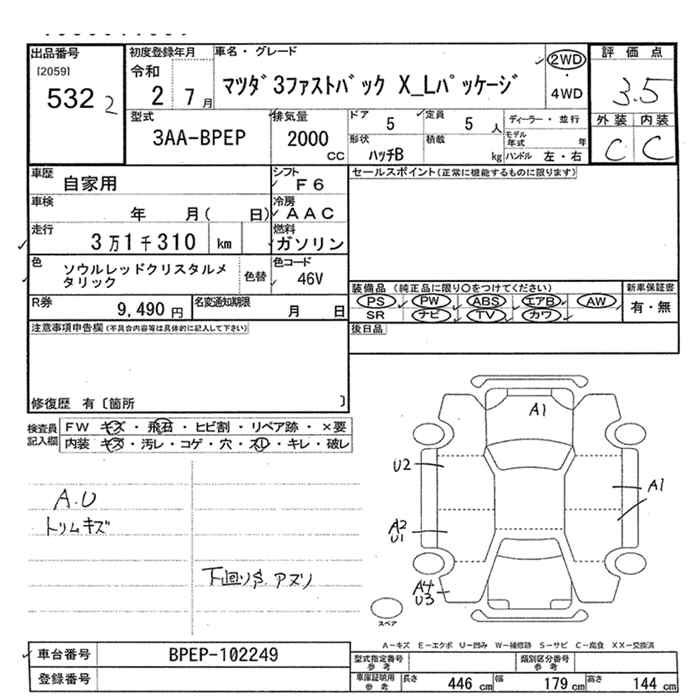 出品番号 初度登録年月 車名・グレード 評価点
[2059] 令和 マツダ3ファストバック X_Lパッケージ 2WD
532 2 2 7月 ・ 3.5
4WD
型式 排気量 ドア 定員 ディーラー・並行 外装 内装
3AA-BPEP 2000 5 5 人 モデル年式 年 C C
CC 形状 ハッチB 積載 kg ハンドル 左・右
車歴 自家用 シフト F6 セールスポイント(正常に機能するものに限ります)
車検 年 月( 日) 冷房 AAC
走行 3万1千310 km 燃料 ガソリン
色 ソウルレッドクリスタルメタリック 色替 色コード 46V
装備品 (純正品に限り○をつけてください) 新車保証書
PS PW ABS エアB AW 有・無
R券 9,490円 名変通知期限 月 日 SR ナビ TV カワ
注意事項申告欄(不具合内容等は具体的に記入して下さい) 後日品
修復歴 有〔箇所 〕
検査員記入欄 FW キズ・飛石・ヒビ割・リペア跡・×要
内装 キズ・汚レ・コゲ・穴・スレ・キレ・破レ
A1
U2
A.U
トリムキズ
A1
A2
U1
下回りS、アズリ
A4
U3
スペア
A-キズ E-エクボ U-凹み W-補修跡 S-サビ C-腐食 XX-交換済
車台番号 BPEP-102249 型式指定番号 参考 類別区分番号 参考
登録番号 車庫証明用 参考 長さ 446 cm 幅 179 cm 高さ 144 cm